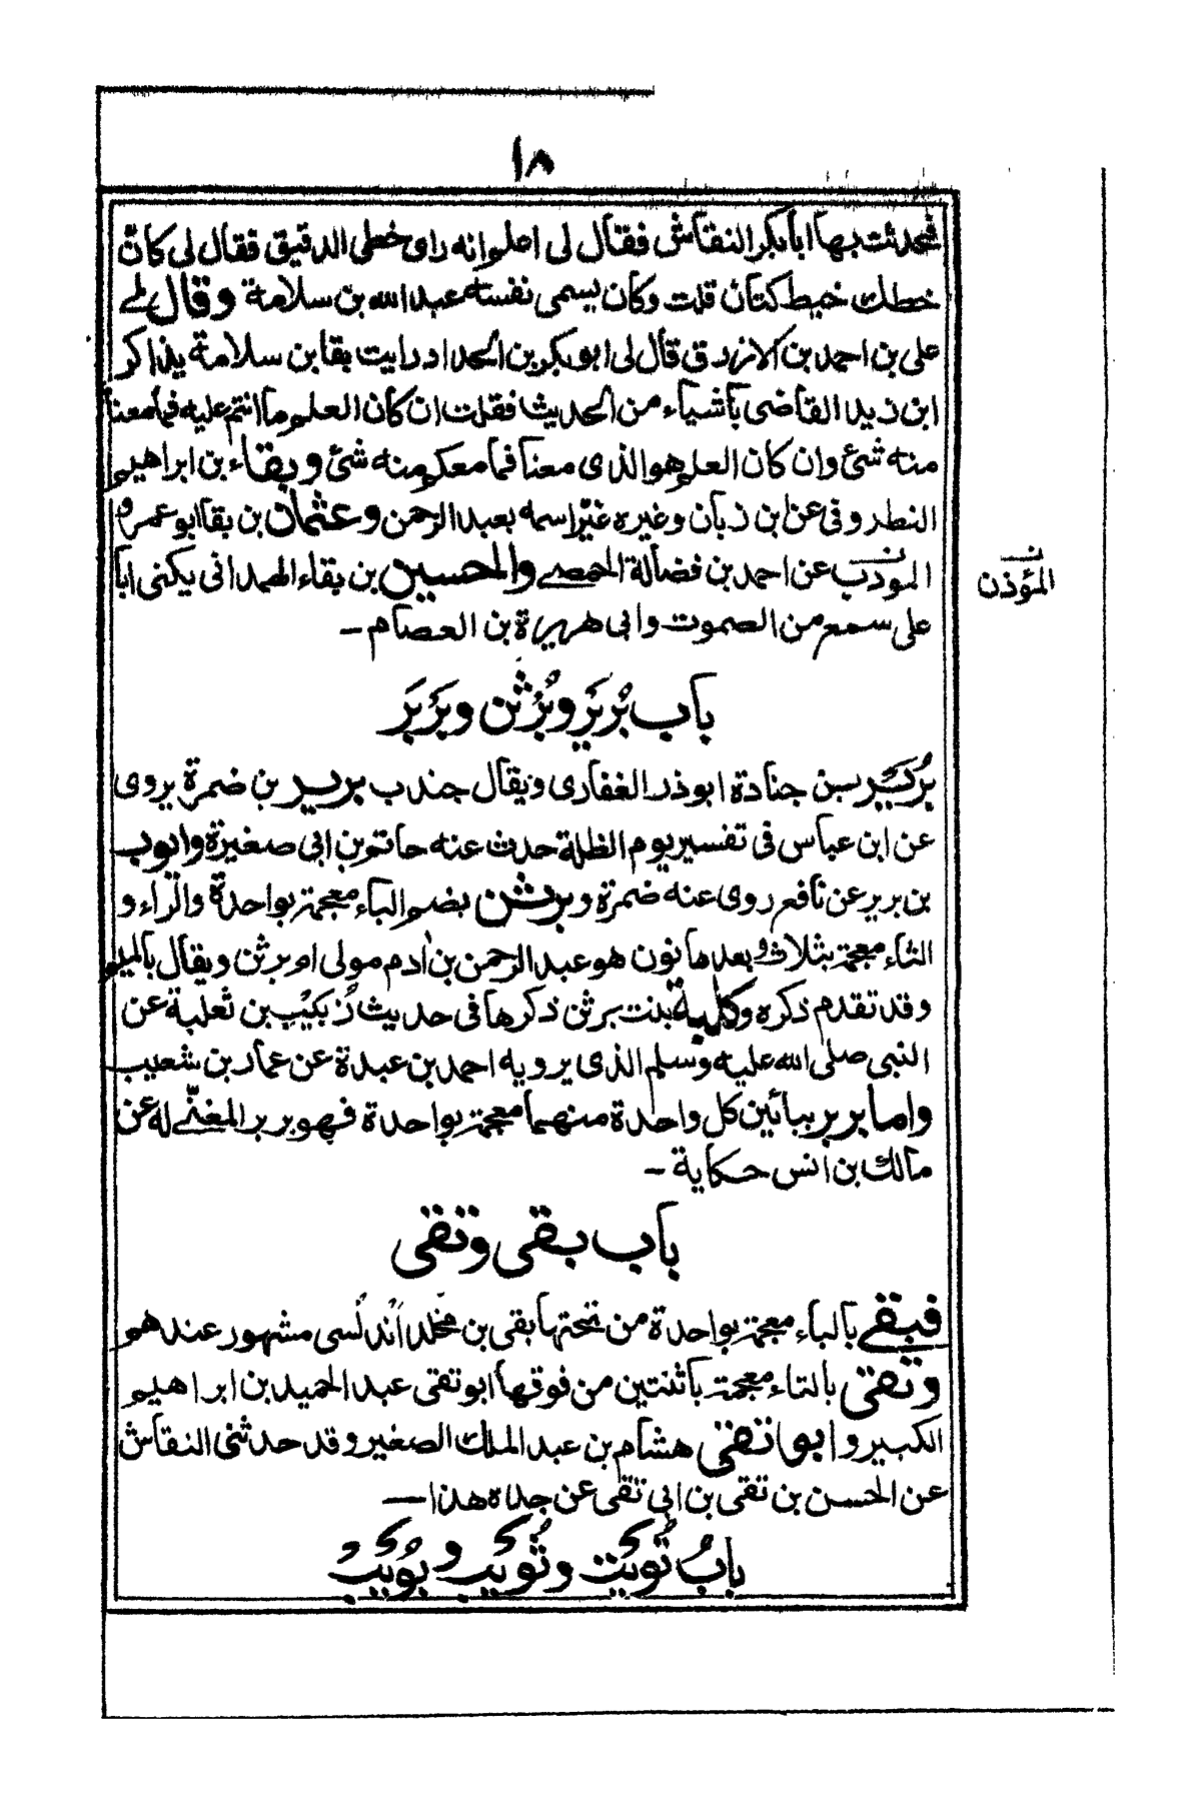 ١٨
فحدثت بها ابا بكر النقاش فقال لى اعلموانه راى خطى الدقيق فقال لى كان
خطك خيط كتان قلت وكان يسمى نفسه عبد الله بن سلامة وقال لے
على بن احمد بن الازرق قال لى ابو بكر بن الحداد رايت بقا بن سلامة يذاكر
ابن زيد القاضى بأشياء من الحديث فقلت ان كان العلم ما انتم عليه فما معنا
منه شئ وان كان العلم هو الذى معنا فما معكم منه شئ وبقاء بن ابراهيم
النطروفى عن ابن زبان وغيره غيّر اسمه بعبد الرحمن وعثمان بن بقا ابو عمرو
المؤدب عن احمد بن فضالة الحمصے والحسين بن بقاء الهمدانى يكنى ابا
المؤذن
على سمع من الصموت وابى هريرة بن العصام -
باب بُرَير وبُرْثن وبَربَر
بُرَيْر بن جنادة ابو ذر الغفارى ويقال جندب برير بن ضمرة يروى
عن ابن عباس فى تفسير يوم الظلة حدث عنه حاتم بن ابى صغيرة وايوب
بن برير عن نافع روى عنه ضمرة وبرثن بضم الباء معجمة بواحدة والراء و
الثاء معجمة بثلاث وبعدها نون هو عبد الرحمن بن ادم مولى ام برثن ويقال بالميم
وقد تقدم ذكره وكلبة بنت برثن ذكرها فى حديث زُبَيْب بن ثعلبة عن
النبى صلى الله عليه وسلم الذى يرويه احمد بن عبدة عن عمار بن شعيب
واما بربر ببائين كل واحدة منهما معجمة بواحدة فهو بربر المغنّے له عن
مالك بن انس حكاية -
باب بقى وتقى
فبقے بالباء معجمة بواحدة من تحتها بقى بن مخلد اندلسى مشهور عندهم
وتقى بالتاء معجمة باثنتين من فوقها ابو تقى عبد الحميد بن ابراهيم
الكبير وابو تقى هشام بن عبد الملك الصغير وقد حدثنى النقاش
عن الحسن بن تقى بن ابى تقى عن جده هذا —
باب تُوَيْت وثُوَيْب وبُوَيْب